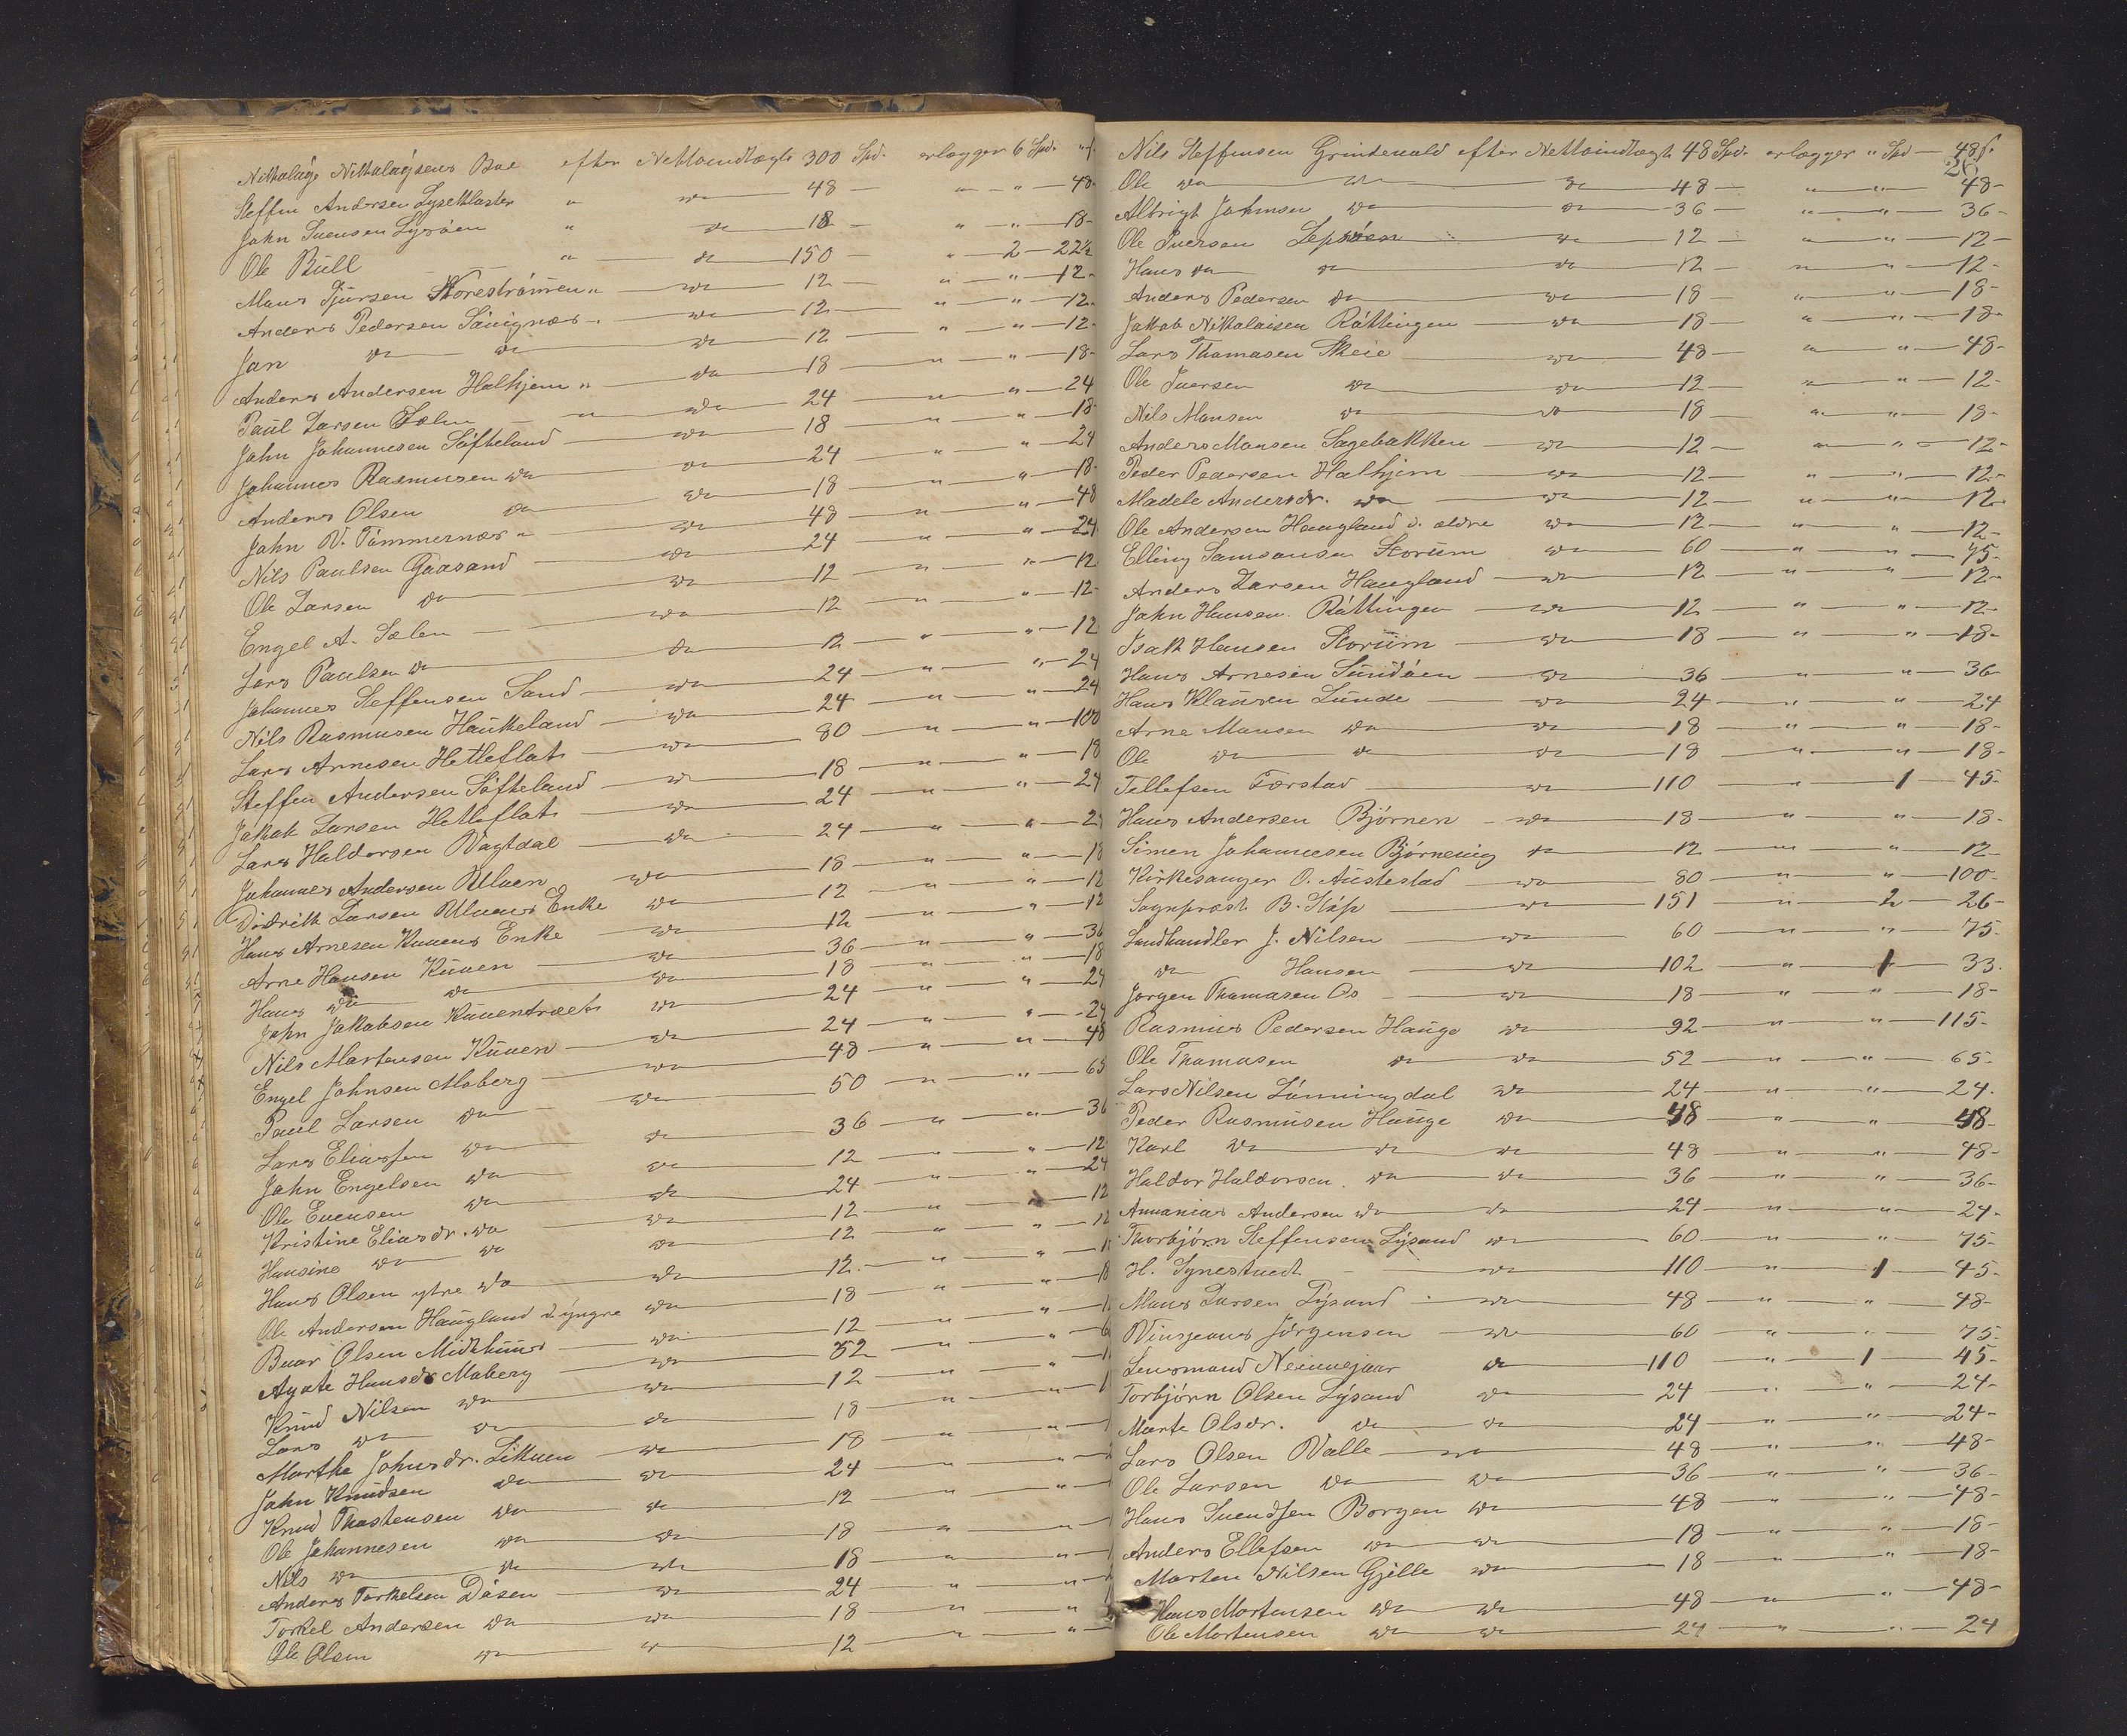 Nikkolåÿs Nikkolåÿsens Boe efter Nettoindtægt 300 Spd. erlægger 6 Spd. "ſ
Steffen Andersen Lyseklosten " do 48 " " 48
John Suensen Lysöen " do 18 " " 18
Ole Bull " do 150 " 2 22½
Mons Tjursen Storeströmen " do 12 " " 12
Anders Pedersen Söuignæs do 12 " " 12
Jan do do do 12 " " 12
Anders Andersen Halhjem " do 18 " " 18
Paul Larsen Sælen " do 24 " " 24
John Johannesen Söfteland do 18 " " 18
Johannes Rasmusen do do 24 " 24
Anders Olsen do do 18 " " 18
John N. Tömmernæs " do 48 " " 48
Nils Paulsen Gaasand do 24 " " 24
Ole Larsen do do 12 " " 12
Engel A. Sælen do 12 " 12
Lars Paulsen do do 12 " " 12
Johannes Steffensen Sand do 24 " " 24
Nils Rasmusen Haukeland do 24 " " 24
Lars Arnesen Hetleflat do 80 " " 100
Steffen Andersen Söfteland do 18 " " 18
Jakob Larsen Hetleflat do 24 " " 24
Lars Haldorsen Vagtdal do 24 " " 2
Johannes Andersen Uluen do 18 " " 18
Didrik Larsen Uluens Enke do 12 " " 12
Hans Arnesen Kuuens Enke do 12 " " 12
Arne Hansen Kuuen do 36 " " 36
Hans do do do 18 " " 18
John Jakobsen Kuuentræet do 24 " " 24
Nils Martensen Kuuen do 24 " " 24
Engel Johnsen Moberg do 48 " " 48
Paul Larsen do do 50 " " 65
Lars Eliassen do do 36 " " 36
John Engelsen do do 12 " " 12
Ole Euensen do do 24 " " 24
Kristine Eliasdr. do do 12 " 12
Hansine do do do 12 " " 12
Hans Olsen ytre do do 12 " " 1
Ole Andersen Haugland d. yngre do 18 " " 18
Beuar Olsen Midthuus do 12 " " 1
Agate Hansdr Moberg do 52 " " 6
Knud Nilsen do do 12 " " 1
Lars do do do 18 " " 1
Marthe Johnsdr. Likuen do 18 " "
John Knudsen do do 24 " "
Knud Thostensen do do 12 " "
Ole Johannesen do do 18 " "
Nils do do do 18 " "
Anders Torkelsen Dösen do 24 " "
Torkel Andersen do do 18 " "
Ole Olsen do do 12 " "
Nils Steffensen Grindeuald efter Nettoindtægt 48 Spd. erlægger " Spd 48ſ.
26
Ole do do do 48 " " 48
Albrigt Johnnsen do do 36 " " 36
Ole Iuersen Lepsöen do 12 " " 12
Hans do do do 12 " " 12
Anders Pedersen do do 18 " " 18
Jakob Nikkolaisen Röttingen do 18 " " 18
Lars Thomasen Skeie do 48 " " 48
Ole Iuersen do do 12 " " 12
Nils Monsen do do 18 " " 18
Anders Monsen Sagebakken do 12 " " 12
Peder Pedersen Halhjem do 12 " " 12
Madele Andersdr. do do 12 " " 12
Ole Andersen Haugland d. ældre do 12 " " 12
Elling Samsonsen Storum do 60 " " 75
Anders Larsen Haugland do 12 " " 12
John Hansen Röttingen do 12 " " 12
Isak Hansen Storum do 18 " " 18
Hans Arnesen Sundöen do 36 " " 36
Hans Klausen Lunde do 24 " " 24
Arne Monsen do do 18 " " 18
Ole do do do 18 " " 18
Tellefsen Færstad do 110 " 1 45
Hans Andersen Björnen do 18 " " 18
Simen Johannesen Björnesing do 12 " " 12
Kirkesanger O. Austestad do 80 " " 100
Sognpræst B. Köp do 151 " 2 26
Landhandler J. Nilsen do 60 " " 75
do Hansen do 102 " 1 33
Jørgen Thomasen Os do 18 " " 18
Rasmus Pedersen Hauge do 92 " " 115
Ole Thomasen do do 52 " " 65
Lars Nilsen Lönningdal do 24 " " 24
Peder Rasmusen Hauge do 48 " " 48
Karl do do do 48 " " 48
Haldor Haldorsen do do 36 " " 36
Annanias Andersen do do 24 " " 24
Thorbjörn Steffensen Lÿsand do 60 " " 75
H. Synestuedt do 110 " 1 45
Mons Larsen Lÿsand do 48 " " 48
Vinsjeans Jörgensen do 60 " " 75
Lensmand Neumejaar do 110 " 1 45
Torbjörn Olsen Lÿsand do 24 " " 24
Marte Olsdr. do do 24 " " 24
Lars Olsen Valle do 48 " " 48
Ole Larsen do do 36 " " 36
Hans Suendsen Borgen do 48 " " 48
Anders Ellefsen do do 18 " " 18
Marten Nilsen Gjelle do 18 " " 18
Hans Mortensen do do 48 " " 48
Ole Mortensen do do 24 " " 24